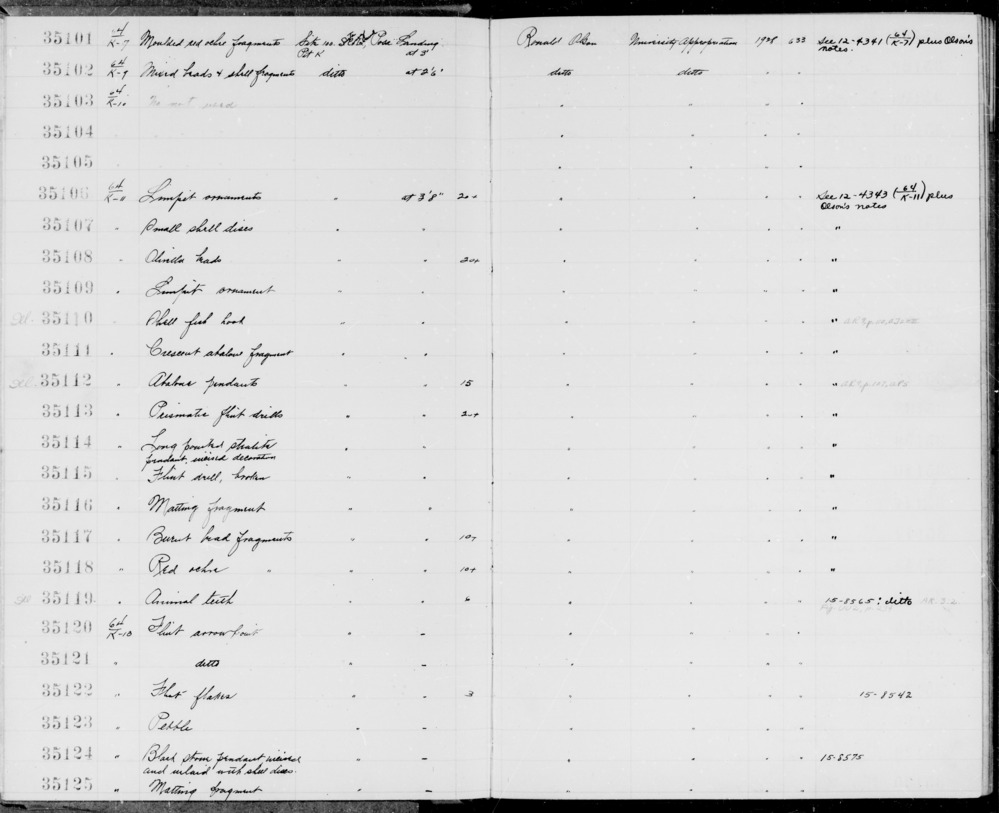 35101 64/K-7 Moulded red ochre fragments Site 100. Pose Landing Ronald Olson University Appropriation 1928 633 See 12-4341 (64/K-7) plus Olson's
Pit K at 3' notes.
35102 64/K-9 Mixed beads & shell fragments ditto at 2'6" ditto ditto " "
35103 64/K-10 " " " "
35104 " " " "
35105 " " " "
35106 64/K-11 Limpit ornaments " at 3'8" 20+ " " " " See 12-4343 (64/K-11) plus
Olson's notes
35107 " Small shell discs " " " " " " "
35108 " Olivella beads " " 20+ " " " " "
35109 " Limpit ornament " " " " " " "
35110 " Shell fish hook " " " " " " "
35111 " Crescent abalone fragment " " " " " " "
35112 " Abalone pendants " " 15 " " " " "
35113 " Prismatic flint drills " " 2+ " " " " "
35114 " Long pointed steatite " " " " " " "
pendant, incised decoration
35115 " Flint drill, broken " " " " " " "
35116 " Matting fragment " " " " " " "
35117 " Burnt bead fragments " " 10+ " " " " "
35118 " Red ochre " " " 10+ " " " " "
35119 " Animal teeth " " 6 " " " " 15-8565: ditto
35120 64/K-10 Flint arrow point " - " " " "
35121 " ditto " - " " " "
35122 " Flint flakes " " 3 " " " " 15-8542
35123 " Pebble " - " " " "
35124 " Black stone pendant incised " - " " " " 15-8575
and inlaid with shell discs.
35125 " Matting fragment " - " " " "